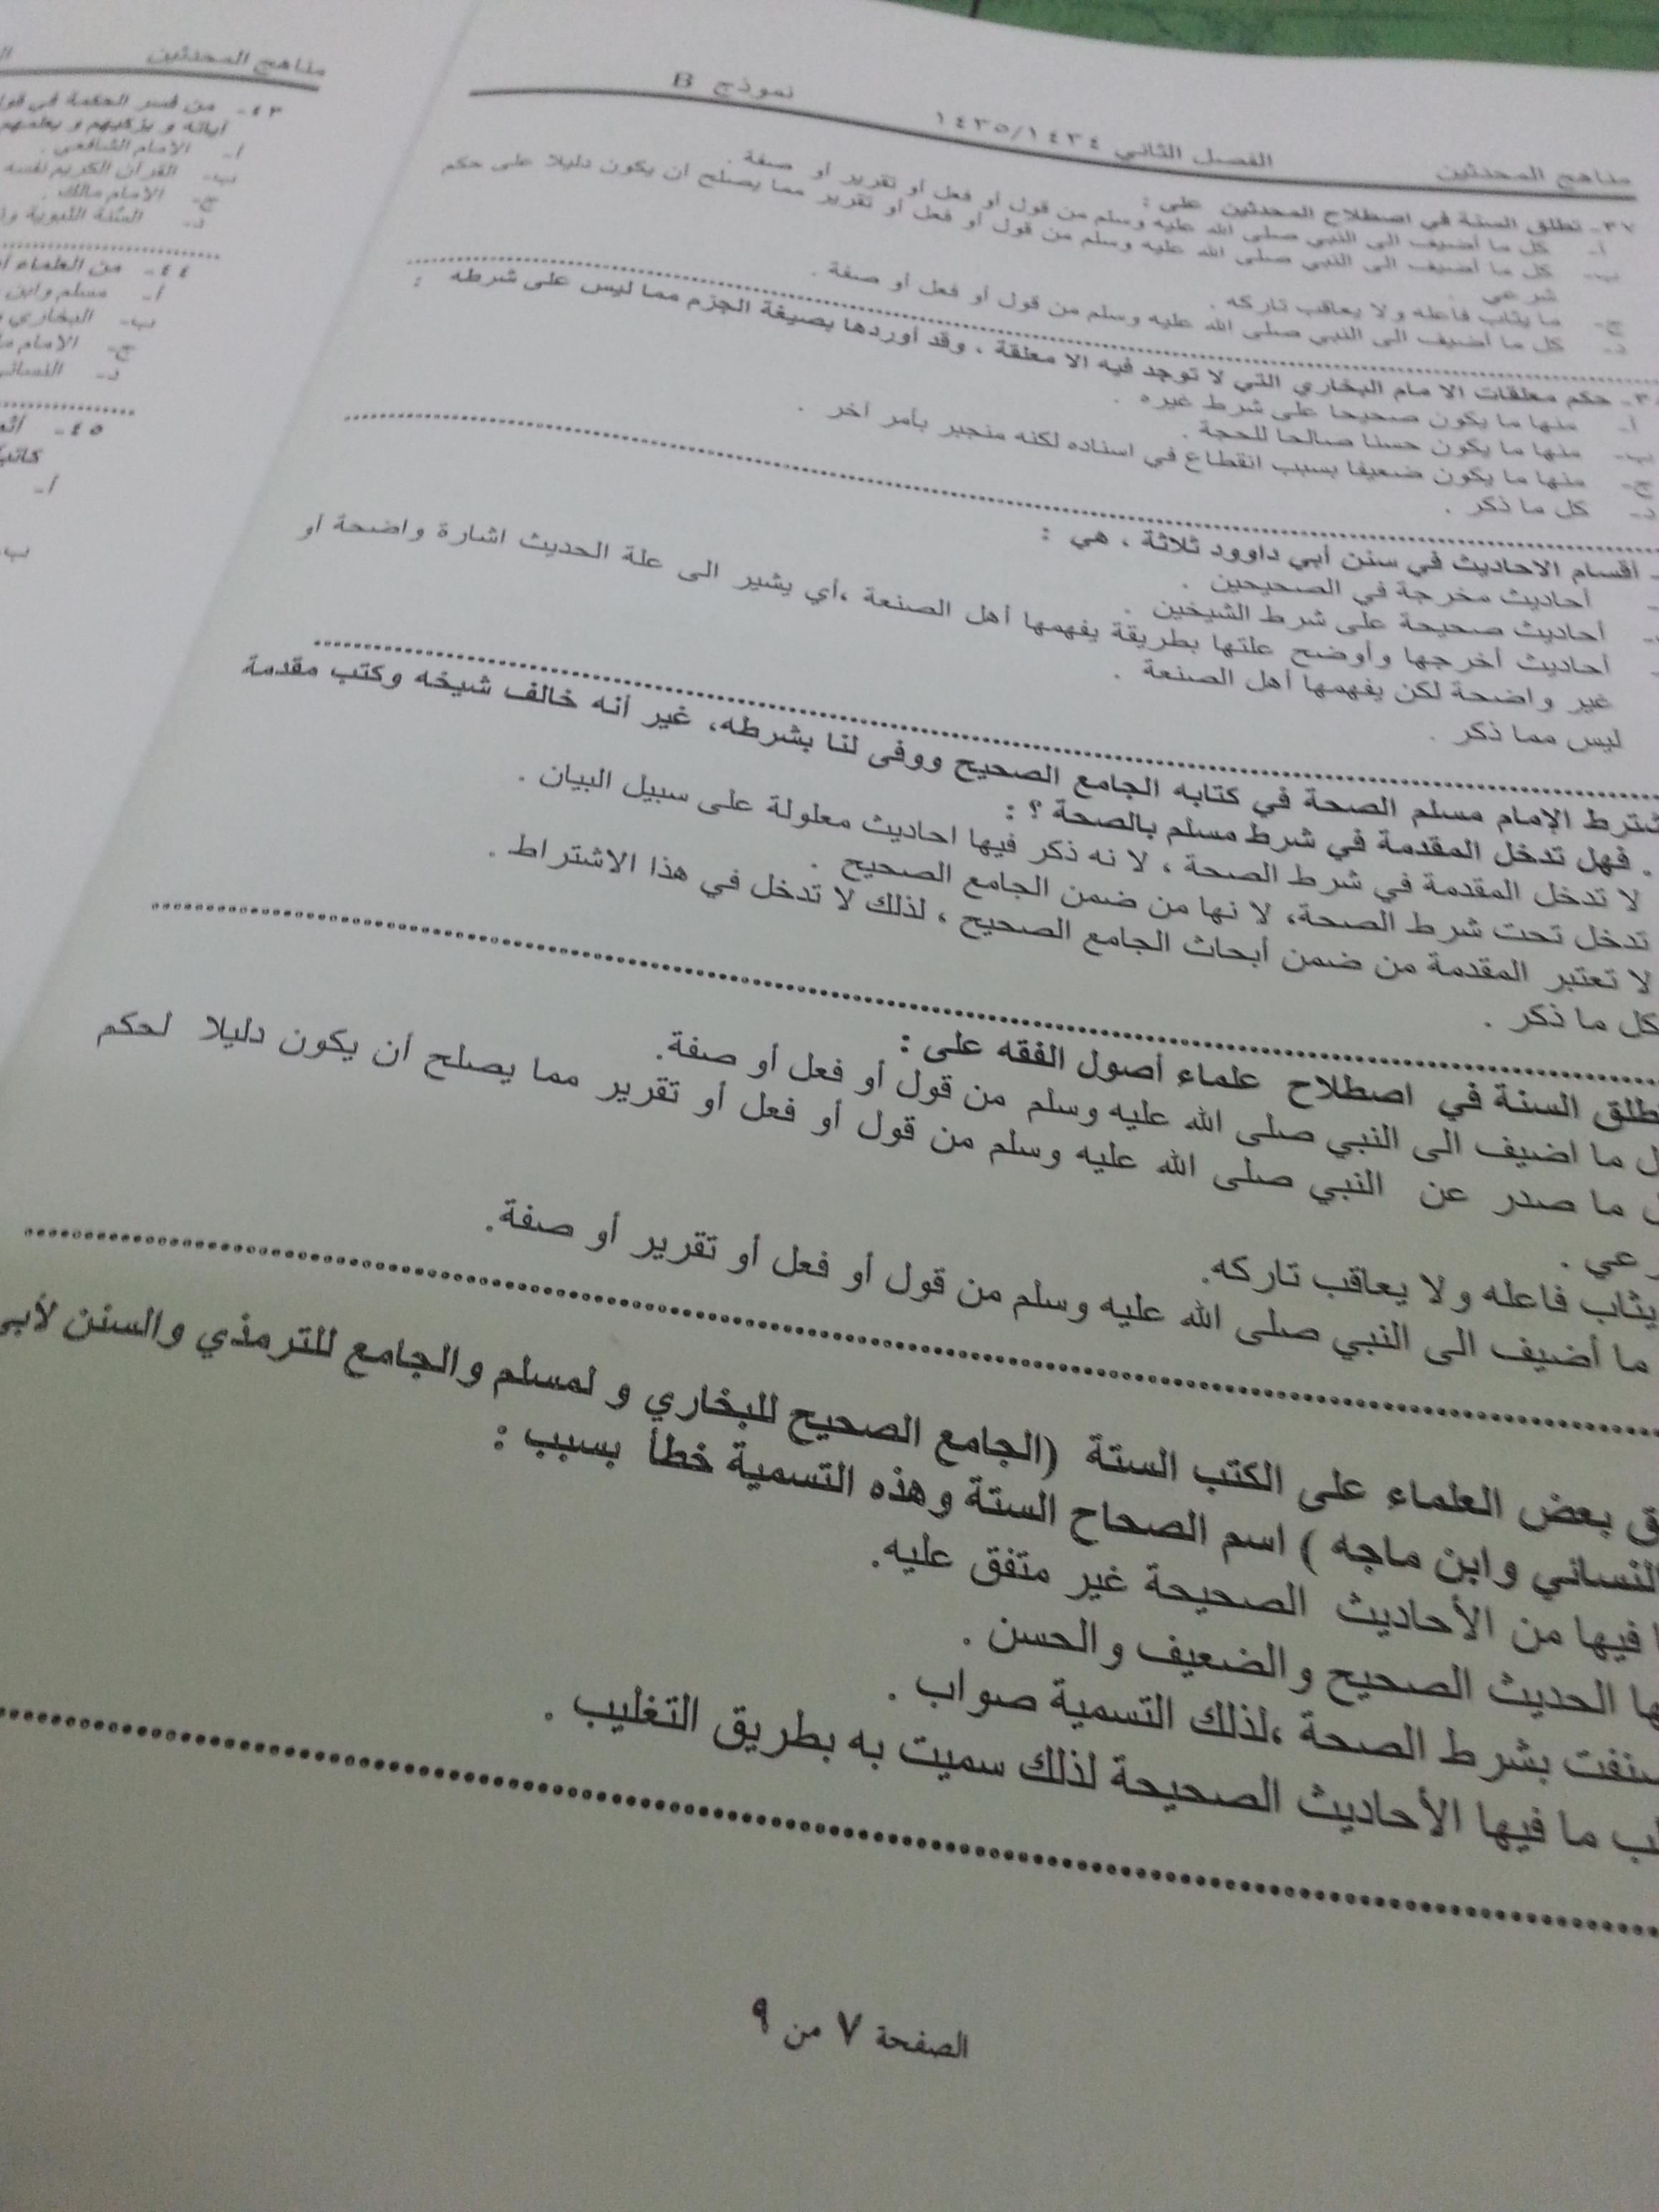 مناهج المحدثين الفصل الثاني ١٤٣٥/١٤٣٤ نموذج B
٣٧- تطلق السنة في اصطلاح المحدثين على :
أ- كل ما أضيف الى النبي صلى الله عليه وسلم من قول أو فعل أو تقرير أو صفة .
ب- كل ما أضيف الى النبي صلى الله عليه وسلم من قول أو فعل أو تقرير مما يصلح ان يكون دليلا على حكم
شرعي .
ج- ما يثاب فاعله ولا يعاقب تاركه .
د- كل ما أضيف الى النبي صلى الله عليه وسلم من قول أو فعل أو صفة .
حكم معلقات الا مام البخاري التي لا توجد فيه الا معلقة ، وقد أوردها بصيغة الجزم مما ليس على شرطه :
أ- منها ما يكون صحيحا على شرط غيره .
ب- منها ما يكون حسنا صالحا للحجة .
ج- منها ما يكون ضعيفا بسبب انقطاع في اسناده لكنه منجبر بأمر أخر .
د- كل ما ذكر .
أقسام الاحاديث في سنن أبي داوود ثلاثة ، هي :
أحاديث مخرجة في الصحيحين .
أحاديث صحيحة على شرط الشيخين .
أحاديث أخرجها وأوضح علتها بطريقة يفهمها أهل الصنعة ،أي يشير الى علة الحديث اشارة واضحة أو
غير واضحة لكن يفهمها أهل الصنعة .
ليس مما ذكر .
شترط الإمام مسلم الصحة في كتابه الجامع الصحيح ووفى لنا بشرطه، غير أنه خالف شيخه وكتب مقدمة
. فهل تدخل المقدمة في شرط مسلم بالصحة ؟ :
لا تدخل المقدمة في شرط الصحة ، لا نه ذكر فيها احاديث معلولة على سبيل البيان .
تدخل تحت شرط الصحة، لا نها من ضمن الجامع الصحيح .
لا تعتبر المقدمة من ضمن أبحاث الجامع الصحيح ، لذلك لا تدخل في هذا الاشتراط .
كل ما ذكر .
طلق السنة في اصطلاح علماء أصول الفقه على :
ل ما اضيف الى النبي صلى الله عليه وسلم من قول أو فعل أو صفة.
ل ما صدر عن النبي صلى الله عليه وسلم من قول أو فعل أو تقرير مما يصلح أن يكون دليلا لحكم
رعي .
يثاب فاعله ولا يعاقب تاركه.
ما أضيف الى النبي صلى الله عليه وسلم من قول أو فعل أو تقرير أو صفة.
ق بعض العلماء على الكتب الستة (الجامع الصحيح للبخاري و لمسلم والجامع للترمذي والسنن لأبي
النسائي وابن ماجه ) اسم الصحاح الستة وهذه التسمية خطأ بسبب :
ا فيها من الأحاديث الصحيحة غير متفق عليه.
ها الحديث الصحيح والضعيف والحسن .
سنفت بشرط الصحة ،لذلك التسمية صواب .
لب ما فيها الأحاديث الصحيحة لذلك سميت به بطريق التغليب .
الصفحة ٧ من ٩
مناهج المحدثين
٤٣- من فسر الحكمة في قوا
آياته و يزكيهم و يعلمهم
أ- الامام الشافعي .
ب- القرآن الكريم نفسه
ج- الامام مالك .
د- السُنة النبوية وا
٤٤- من العلماء ا
أ- مسلم وابن
ب- البخاري و
ج- الامام ما
د- النسائي
٤٥-
كاتب
أ-
ب-